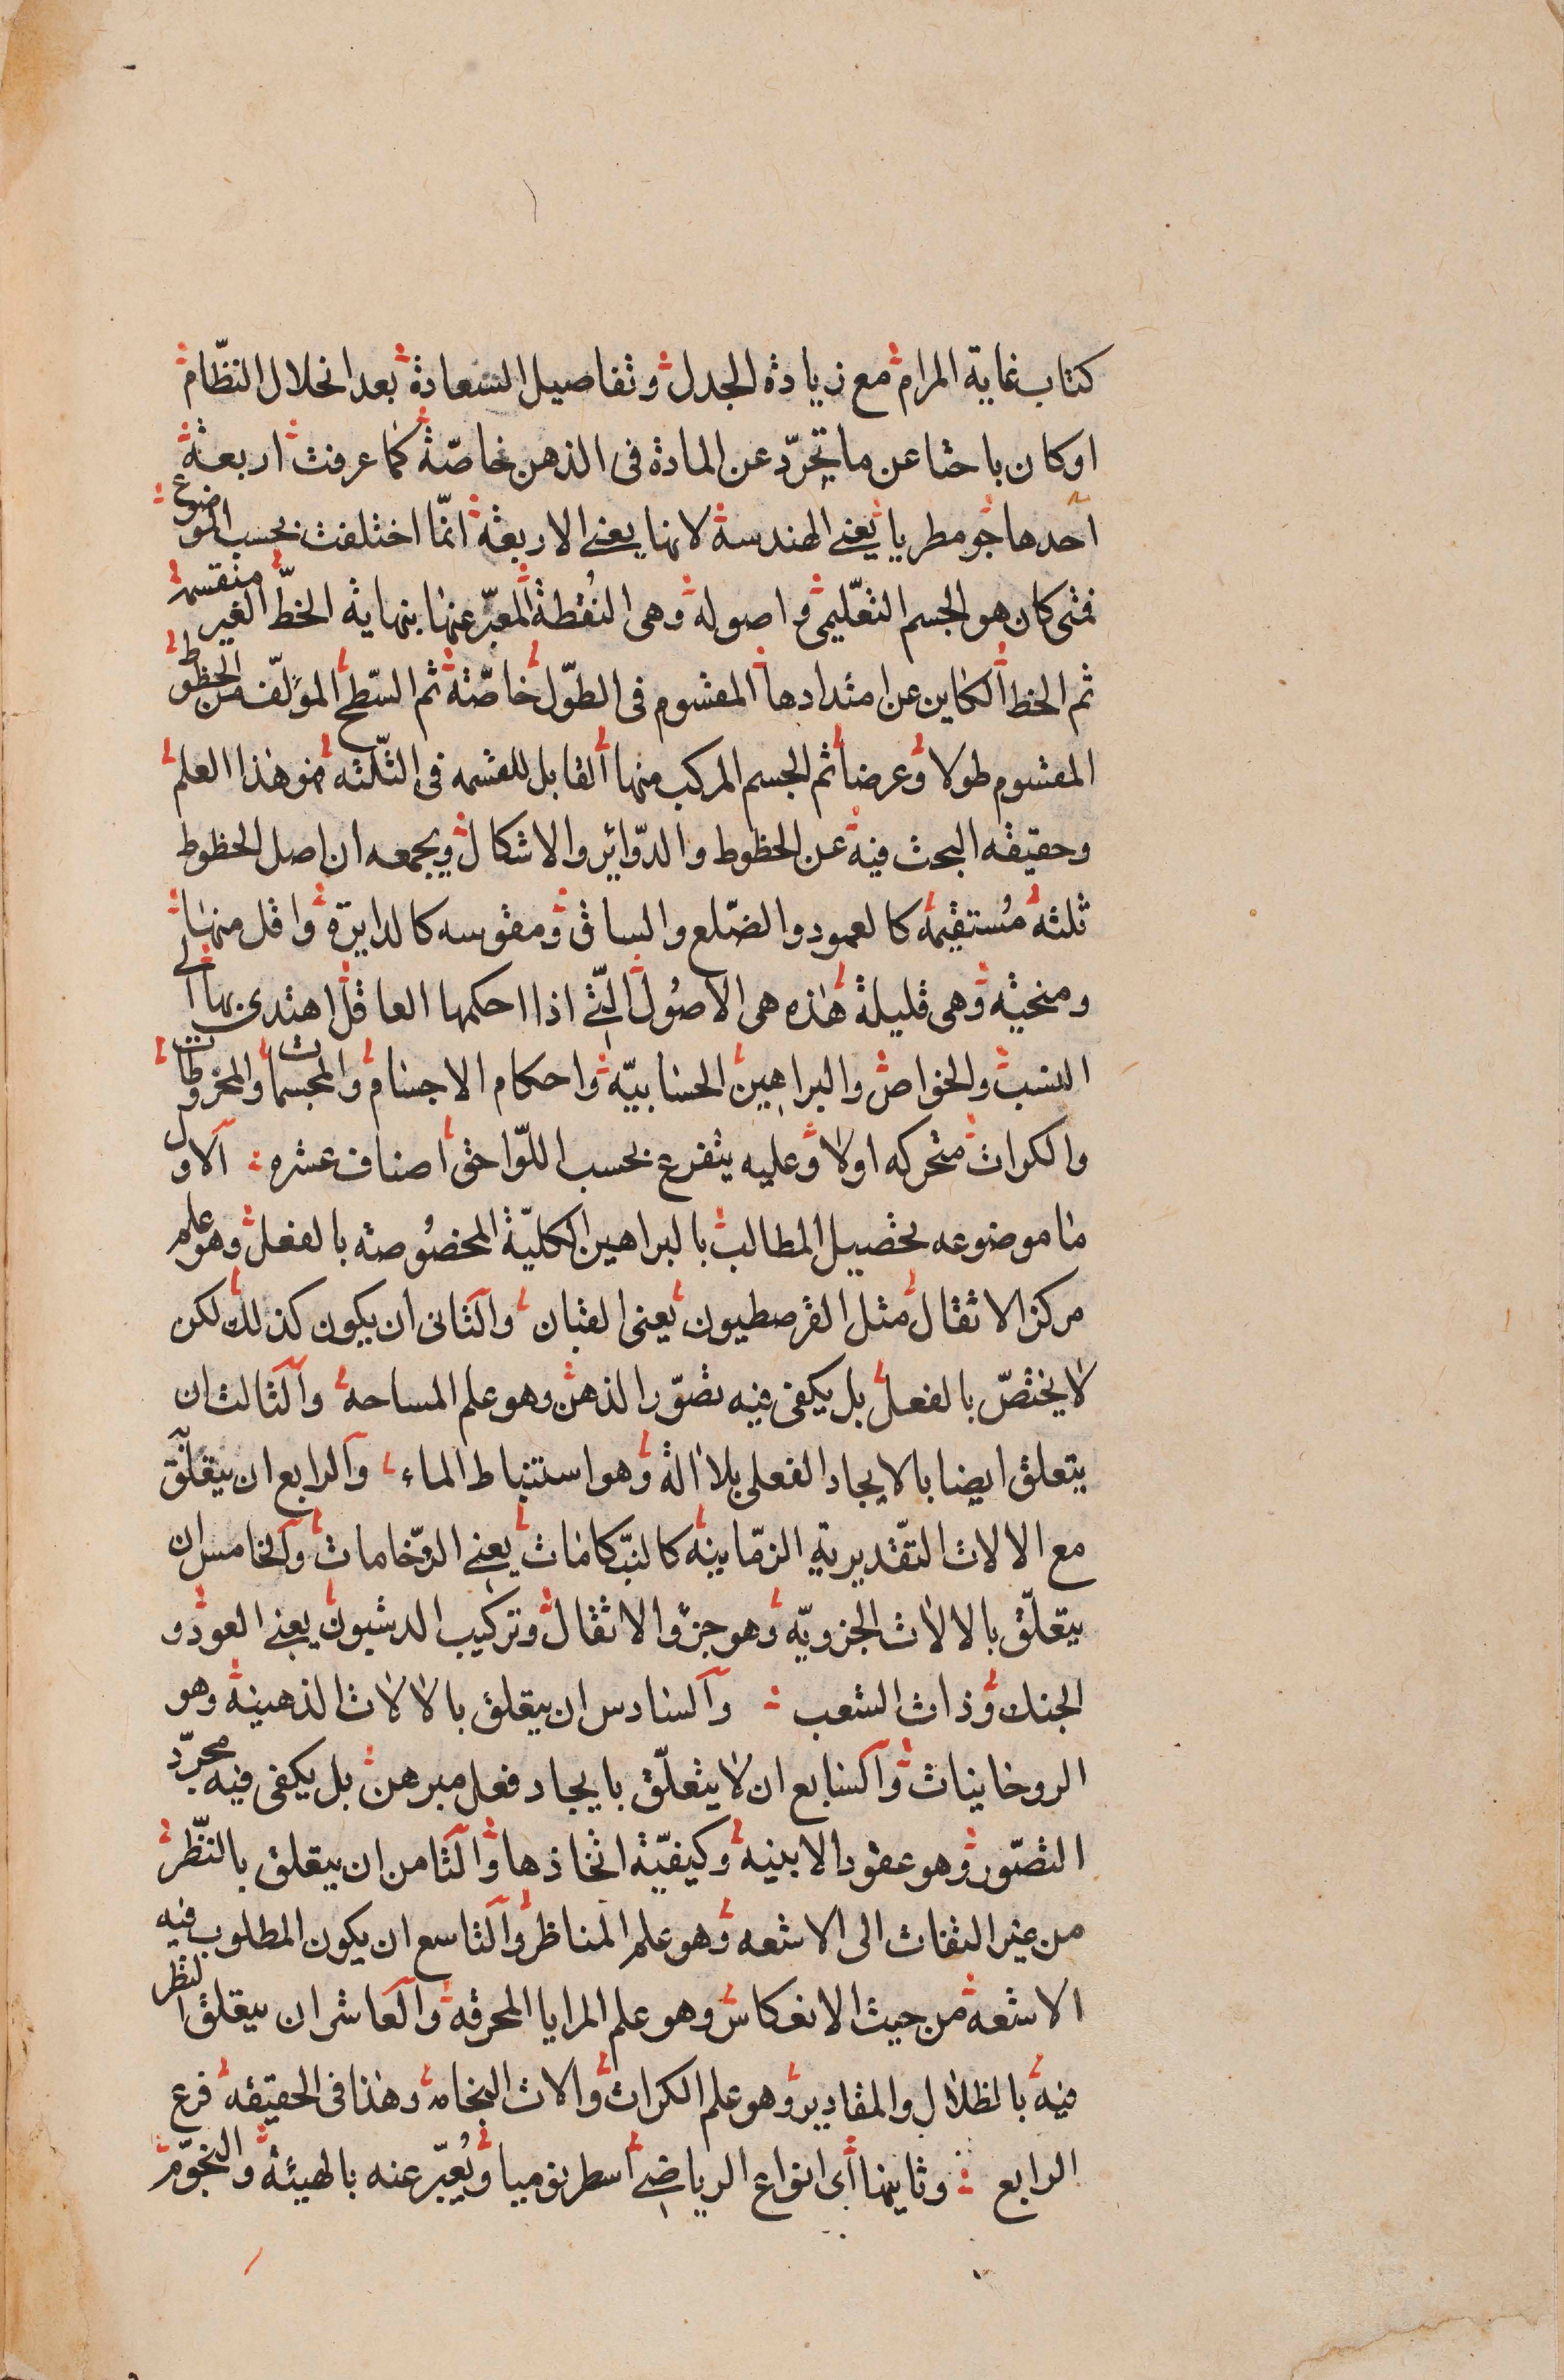 كتاب غاية المرام مع زيادة الجدل وتفاصيل السعادة بعد انحلال النظّام
اوكان باحثا عن ما تجرّد عن المادة فى الذهن خاصّة كما عرفت اربعة
احدها جومطريا يعنے الهندسة لانها يعنے الاربعة انّما اختلفت بحسب الموضوع
فمتى كان هو الجسم التعّليمى واصوله وهى النُقطة المعبّر عنها بنهاية الخطّ الغير منقسمه
ثم الخط الكاين عن امتدادها المقسوم فى الطوّل خاصّته ثم السّطح المؤلّف من الخطوط
المقسوم طولا وعرضا ثم الجسم المركب منها القابل للقسمه فى الثّلثه فهو هذا العلم
وحقيقه البحث فيه عن الخطوط والدوّائر والاشكال ويجمعه ان اصل الخطوط
ثلثه مُستقيمه كالعمود والضّلع والساق ومقوسه كالدايرة واقل منها
ومنحنيه وهى قليلة هٰذه هى الاصُول التّے اذا احكمها العاقل اهتدى بها الى
النسب والخواص والبراهين الحسابيّه واحكام الاجسام والمجسمات والمخروطات
والكرات متحركه اولا وعليه يتفرع بحسب اللوّاحق اصناف عشره الاول
ما موضوعه تحصيل المطالب بالبراهين الكليّة المخصُوصته بالفعل وهو علم
مركز الاثقال مثل القرصطيون يعنى القبان والثانى ان يكون كذلك لكن
لا يختصّ بالفعل بل يكفى فيه تصوّر الذهن وهو علم المساحه والثالث ان
يتعلق ايضا بالايجاد الفعلى بلا الة وهو استنباط الماء والرابع ان يتعلّق
مع الالات التقّديرية الزمّاينه كالبّنكامات يعنے الرّخامات والخامس ان
يتعلّق بالالات الجزويّه وهو جرّ الاثقال وتركيب الدشيون يعنے العود و
الجنك وذات الشعب والسادس ان يتعلق بالالات الذهبينه وهو
الروحاينيات والسابع ان لا يتعلّق بايجاد فعل مبرهن بل يكفى فيه مجرّد
التصّور وهو عقود الابنيه وكيفيّة اتخاذها والثامن ان يتعلق بالنّظر
من غير التفات الى الاشعه وهو علم المناظر والتاسع ان يكون المطلوب فيه
الاشعه من حيث الانعكاس وهو علم المرايا المحرقه والعاشر ان يتعلق النظر
فيه بالظلال والمقادير وهو علم الكرات والات النجامه وهٰذا فى الحقيقه فرع
الرابع وثاينها أى انواع الرياضے اسطرنوميا ويُعبّر عنه بالهيئة والنجوّم